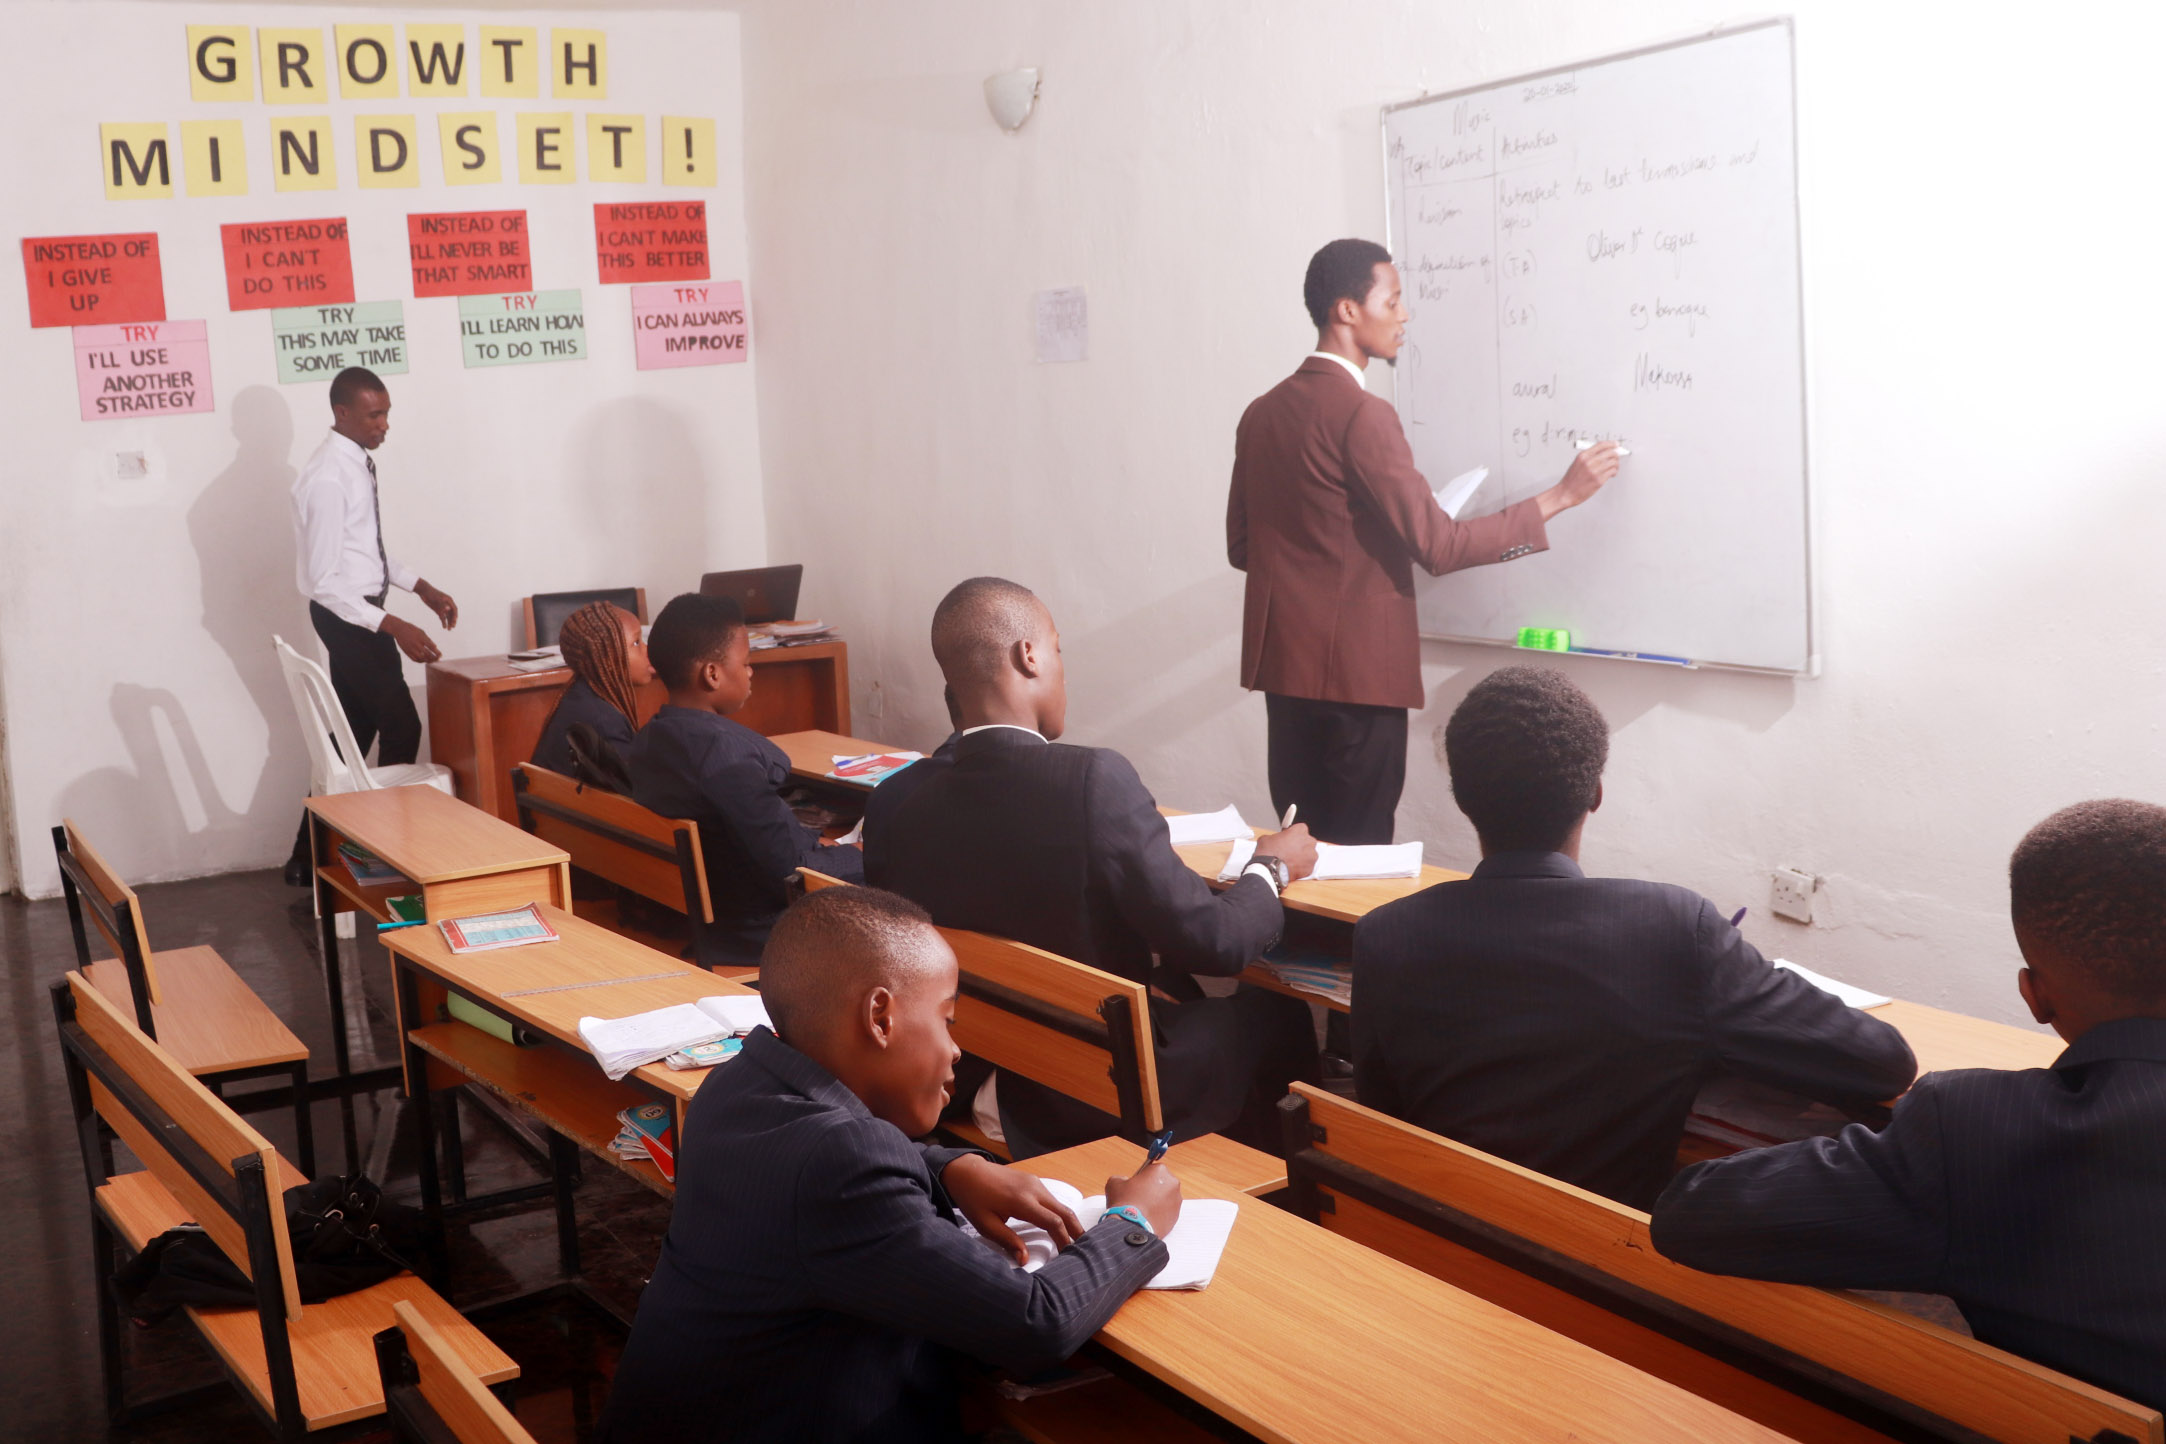 GROWTH
MINDSET!
INSTEAD OF
I GIVE
UP
TRY
I'LL USE
ANOTHER
STRATEGY
INSTEAD OF
I CAN'T
DO THIS
TRY
THIS MAY TAKE
SOME TIME
INSTEAD OF
I'LL NEVER BE
THAT SMART
TRY
I'LL LEARN HOW
TO DO THIS
INSTEAD OF
I CANT MAKE
THIS BETTER
TRY
I CAN ALWAYS
IMPROVE
Music
Topic/content
Activities
Revision
Retrospect to last and
topics
(TA)
eg baroque
(SA)
Makossa
aural
eg